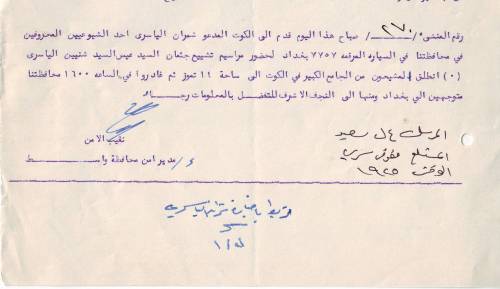 رقم العضو /٢٧٠/ صباح هذا اليوم قدم الى الكوت المدعو شمران الياسرى احد الشيوعيين المعروفين
في محافظتنا في السياره المرقمه ٧٧٥٧ بغداد لحضور مراسيم تشييع جثمان السيد عيس السيد شنيين الياسرى
(٠) انطلق المشيعين من الجامع الكبير في الكوت الى ساحة ١٤ تموز ثم غادروا في الساعه ١٦٠٠ محافظتنا
متوجهين الى بغداد ومنها الى النجف الاشرف للتفضل بالمعلومات رجاء
نقيب الامن
ع/ مدير امن محافظة واسط
المرسل سعيد
المستلم سري
الوقت ١٩٢٥